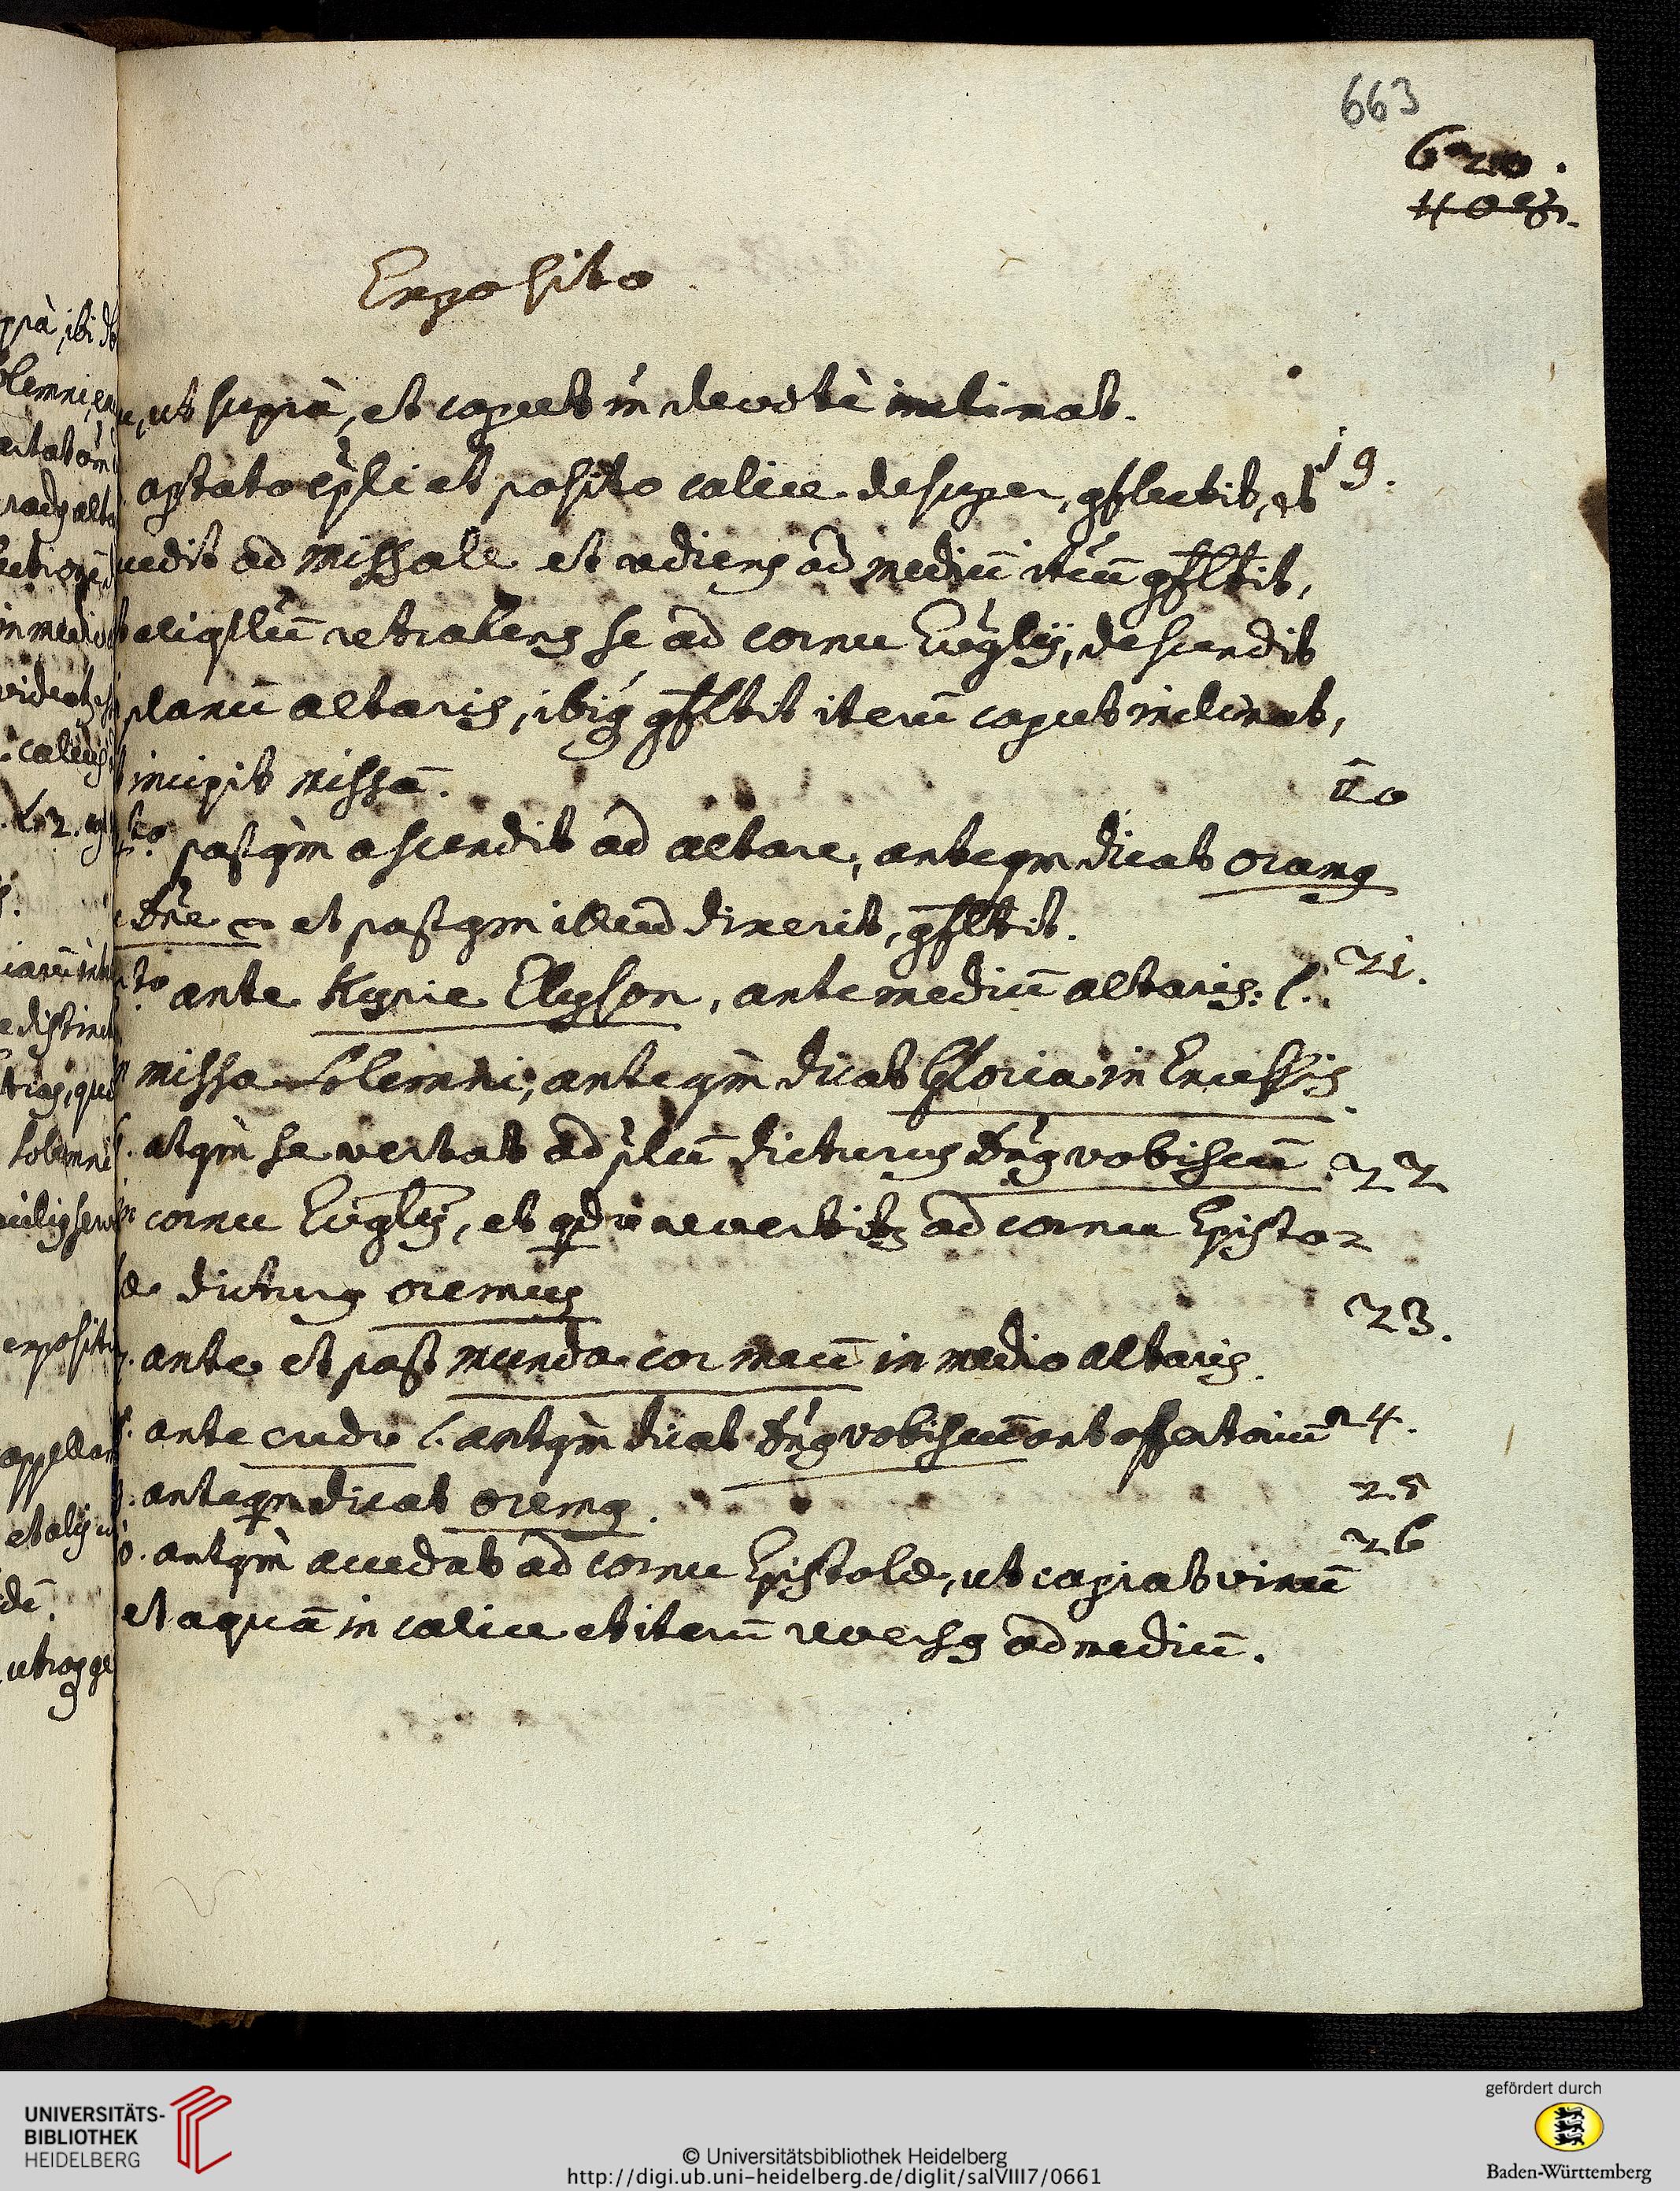 663
620.
408.
Exposito
ut suprà, et caput in devotè inclinat.
aptato cpli et posito calice desuper, gflectit, et 19.
cedit ad missale et rediens ad mediū itēū gfltit,
aliqtlū retrahens se ad cornu Evglij, descendit
planū altaris, ibiq gfltit iterū caput inclinat,
incipit missā.
20
postqm ascendit ad altare, anteqm dicat oramq
Dne et postqm illud dixerit, gfltit.
to ante Kyrie Elyson, ante mediū altaris: l. 21.
missa solemni, anteqm dicat Gloria in Excelsis
atqm se vertat ad plū dicturus Dnq vobiscū 22
cornu Evglij, et qdo revertitz ad cornu Episto=
læ dicturus oremus
23.
ante et post munda cor meū in medio altaris.
ante credo l. antqm dicat Dnq vobiscū ant offertoriū 24.
anteqm dicat oremq. 25
antqm accedat ad cornu Epistolæ, ut capiat vinū 26
et aquā in calice et iterū reversq ad mediū.
UNIVERSITÄTS-
BIBLIOTHEK
HEIDELBERG
© Universitätsbibliothek Heidelberg
http://digi.ub.uni-heidelberg.de/diglit/salVIII7/0661
gefördert durch
Baden-Württemberg